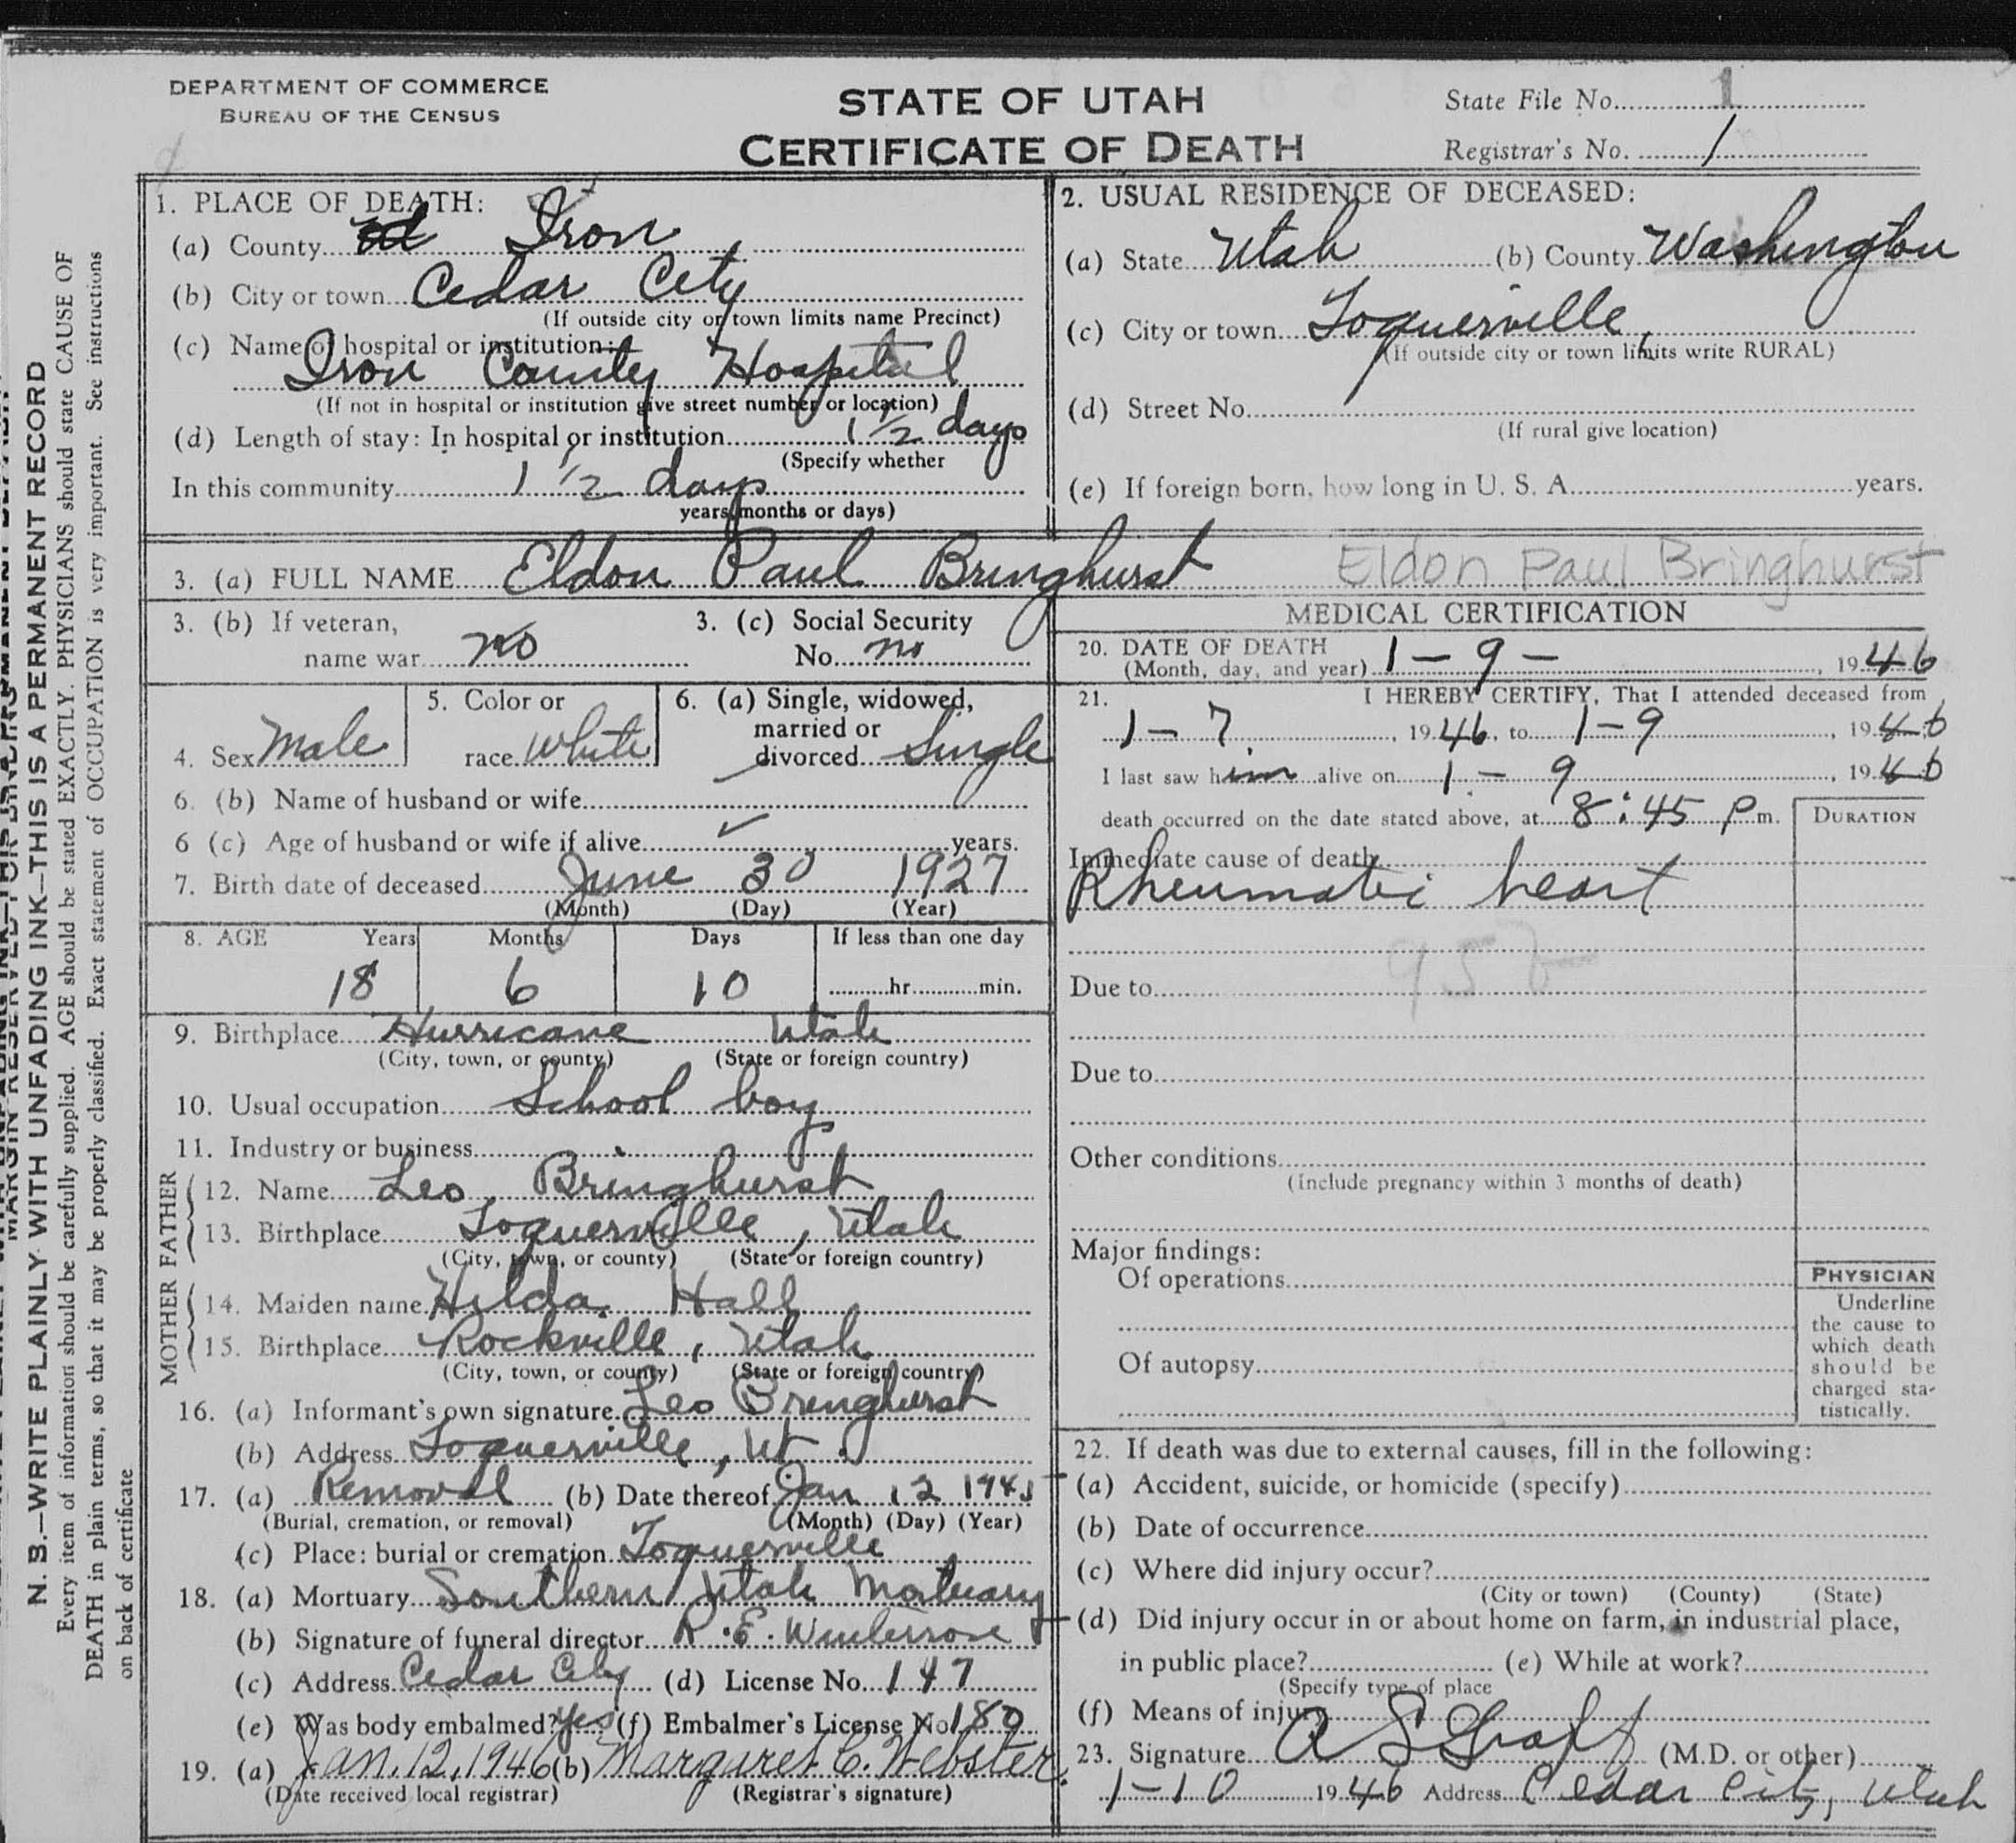 DEPARTMENT OF COMMERCE
BUREAU OF THE CENSUS
STATE OF UTAH
CERTIFICATE OF DEATH
State File No. 1
Registrar's No. 1
N. B.—WRITE PLAINLY WITH UNFADING INK—THIS IS A PERMANENT RECORD
Every item of information should be carefully supplied. AGE should be stated EXACTLY. PHYSICIANS should state CAUSE OF
DEATH in plain terms, so that it may be properly classified. Exact statement of OCCUPATION is very important. See instructions
on back of certificate
1. PLACE OF DEATH:
(a) County Iron
(b) City or town Cedar City
(If outside city or town limits name Precinct)
(c) Name of hospital or institution:
Iron County Hospital
(If not in hospital or institution give street number or location)
(d) Length of stay: In hospital or institution 1 1/2 days
(Specify whether
In this community 1 1/2 days
years, months or days)
2. USUAL RESIDENCE OF DECEASED:
(a) State Utah (b) County Washington
(c) City or town Toquerville
(If outside city or town limits write RURAL)
(d) Street No.
(If rural give location)
(e) If foreign born, how long in U. S. A. years.
3. (a) FULL NAME Eldon Paul Bringhurst Eldon Paul Bringhurst
3. (b) If veteran,
name war no
3. (c) Social Security
No. no
4. Sex Male
5. Color or
race White
6. (a) Single, widowed,
married or
divorced Single
6. (b) Name of husband or wife
6 (c) Age of husband or wife if alive years.
7. Birth date of deceased June 30 1927
(Month) (Day) (Year)
8. AGE Years Months Days If less than one day
18 6 10 hr. min.
9. Birthplace Hurricane Utah
(City, town, or county) (State or foreign country)
10. Usual occupation School boy
11. Industry or business
FATHER
12. Name Leo Bringhurst
13. Birthplace Toquerville, Utah
(City, town, or county) (State or foreign country)
MOTHER
14. Maiden name Hilda Hall
15. Birthplace Rockville, Utah
(City, town, or county) (State or foreign country)
16. (a) Informant's own signature Leo Bringhurst
(b) Address Toquerville, Ut.
17. (a) Removal (b) Date thereof Jan 12 1945
(Burial, cremation, or removal) (Month) (Day) (Year)
(c) Place: burial or cremation Toquerville
18. (a) Mortuary Southern Utah Mortuary
(b) Signature of funeral director R. E. Winterrose
(c) Address Cedar City (d) License No. 147
(e) Was body embalmed? yes (f) Embalmer's License No. 189
19. (a) Jan. 12, 1946 (b) Margaret C. Webster.
(Date received local registrar) (Registrar's signature)
MEDICAL CERTIFICATION
20. DATE OF DEATH
(Month, day, and year) 1 - 9 - , 1946
21. I HEREBY CERTIFY, That I attended deceased from
1 - 7, 1946, to 1 - 9, 1946
I last saw him alive on 1 - 9, 1946
death occurred on the date stated above, at 8:45 P m.
DURATION
Immediate cause of death
Rheumatic heart
Due to
Due to
Other conditions
(Include pregnancy within 3 months of death)
Major findings:
Of operations
Of autopsy
PHYSICIAN
Underline
the cause to
which death
should be
charged sta-
tistically.
22. If death was due to external causes, fill in the following:
(a) Accident, suicide, or homicide (specify)
(b) Date of occurrence
(c) Where did injury occur?
(City or town) (County) (State)
(d) Did injury occur in or about home on farm, in industrial place,
in public place? (e) While at work?
(Specify type of place
(f) Means of injury
23. Signature A S Graff (M.D. or other)
1-10 1946 Address Cedar City, Utah